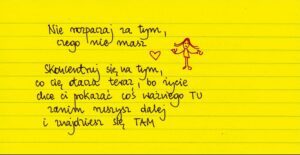 Nie rozpaczaj za tym,
czego nie masz
Skoncentruj się na tym,
co cię otacza teraz, bo życie
chce ci pokazać coś ważnego TU
zanim ruszysz dalej
i znajdziesz się TAM